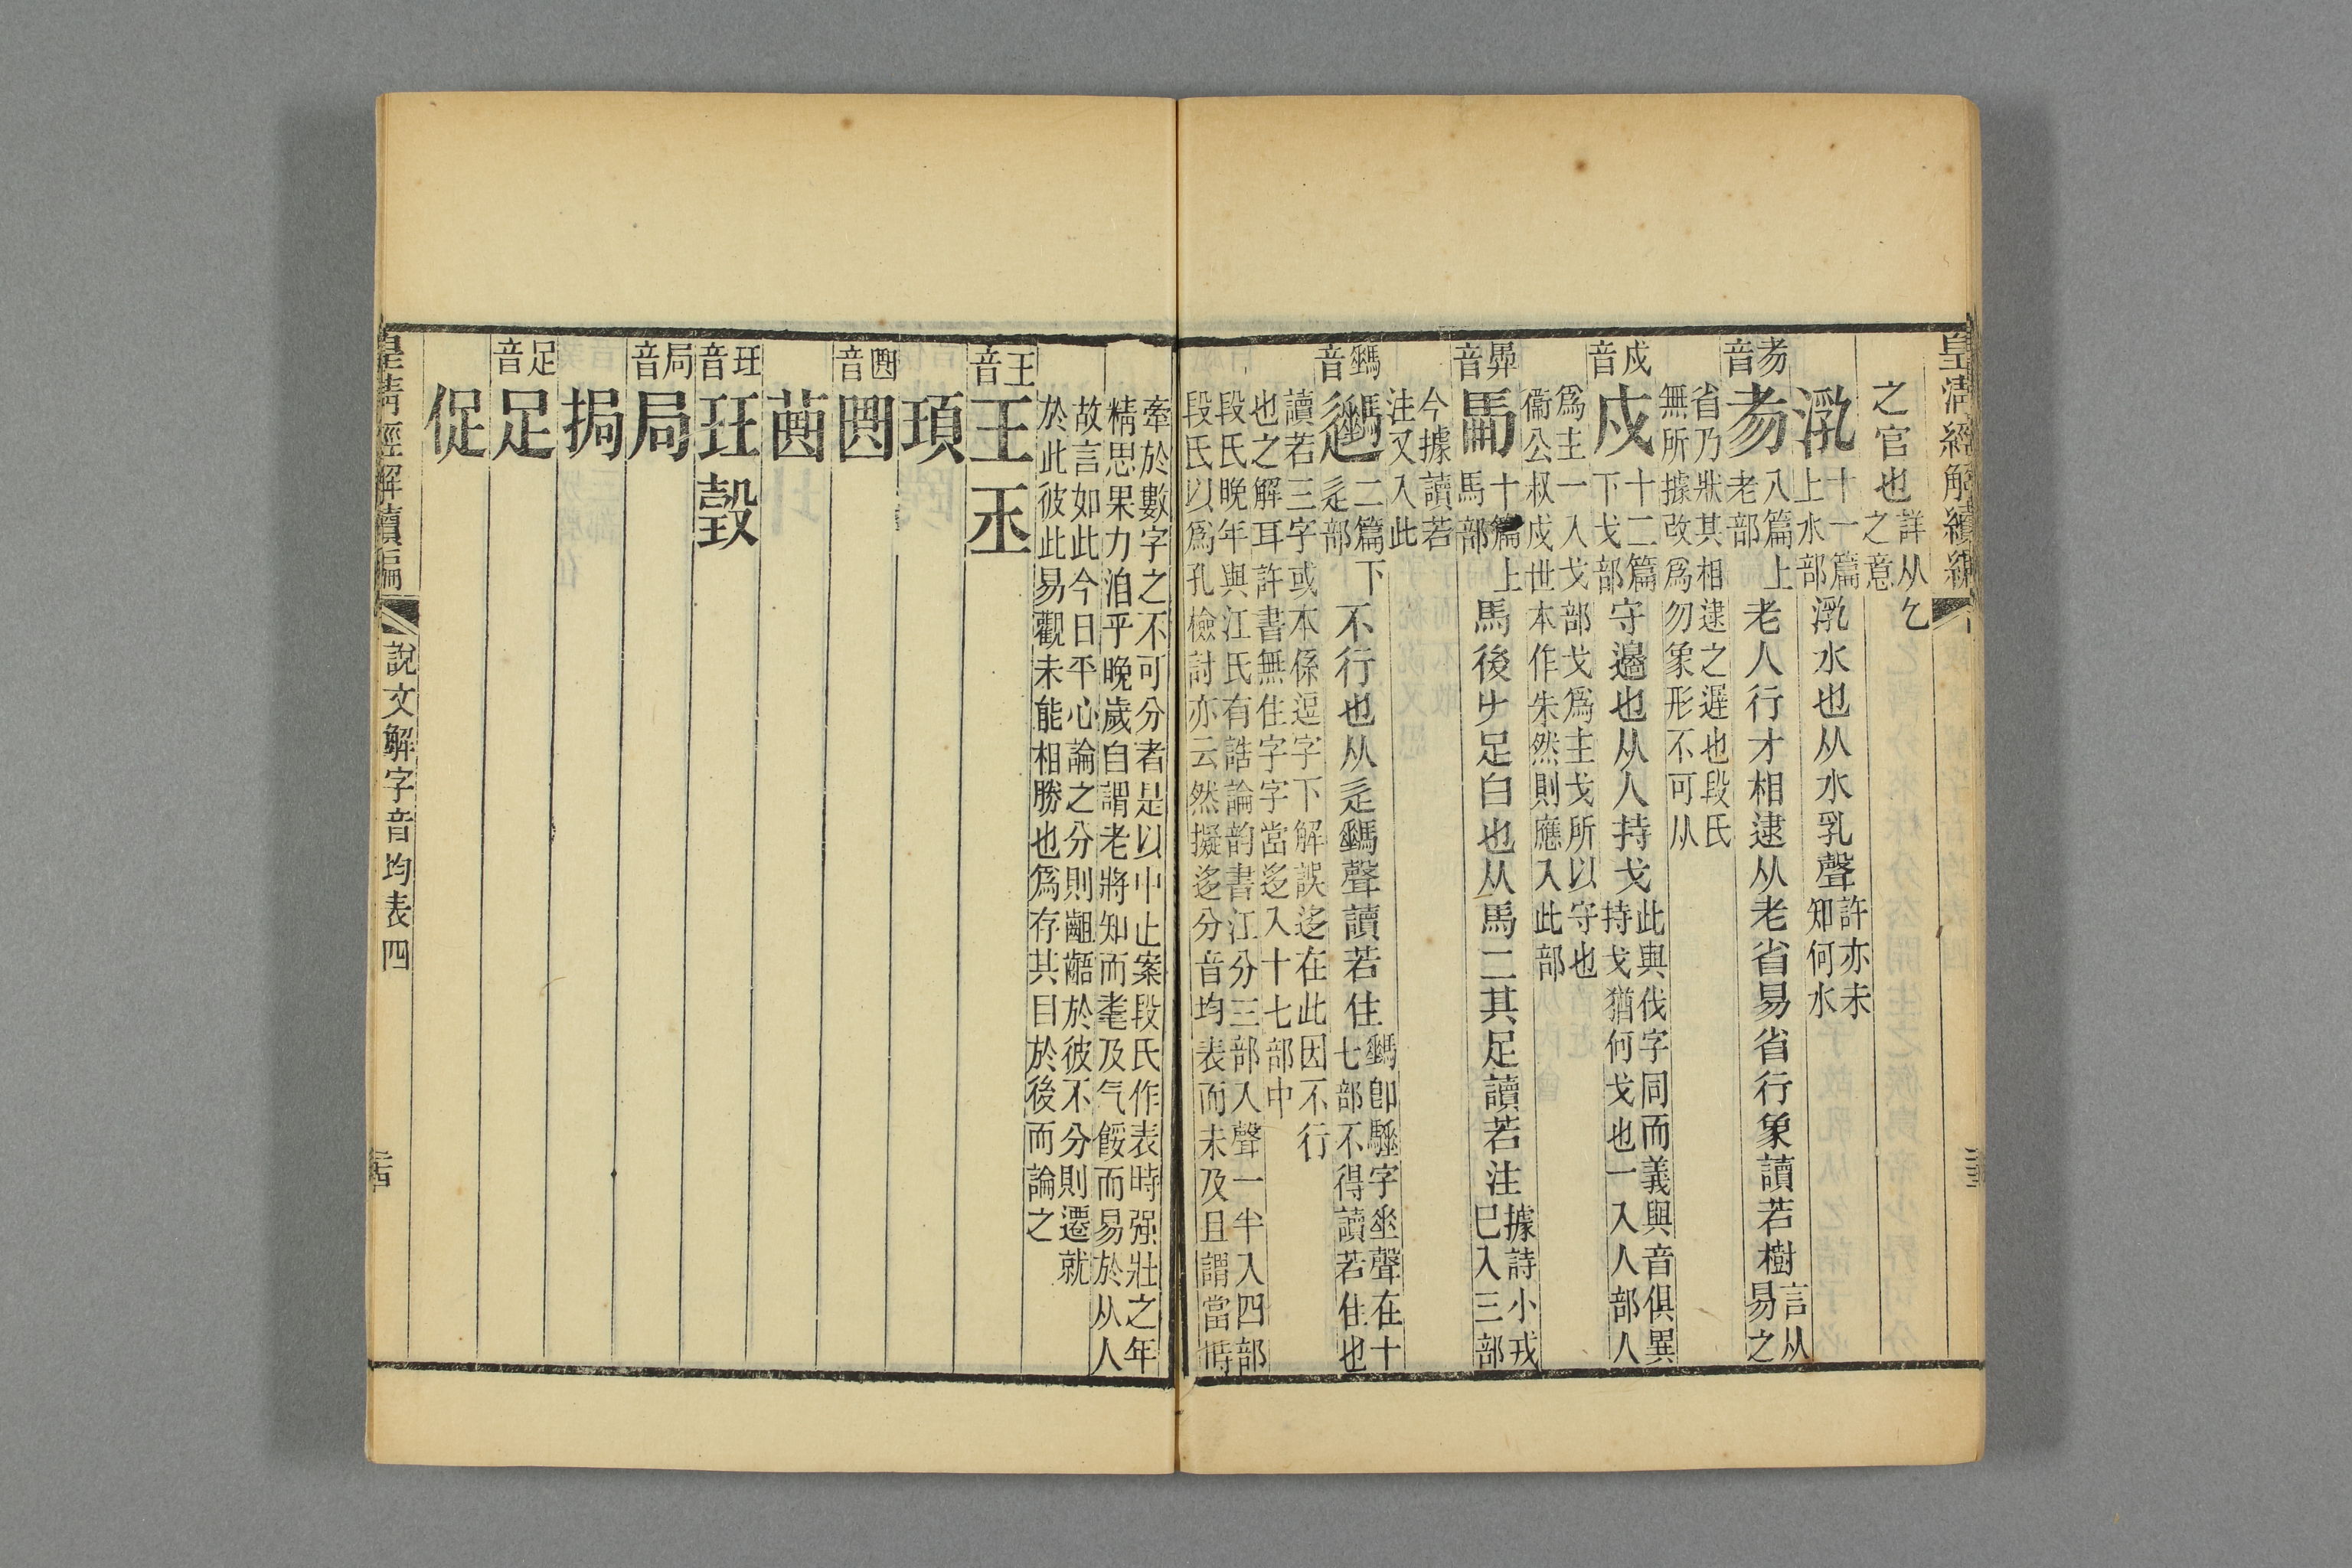 皇清經解續編
之官也詳从乞之意
㳶十一篇上水部㳶水也从水乳聲許亦未知何水
𦒱音𦒱八篇上老部老人行才相逮从老省易省行象讀若樹言从易之
省乃狀其相逮之遲也段氏無所據改爲勿象形不可从
戍音戍十二篇下戈部守邊也从人持戈此與伐字同而義與音俱異持戈戈猶何戈也一入人部人
爲主一入戈部戈爲主戈所以守也衞公叔戍世本作朱然則應入此部
馵音馵十篇上馬部馬後𠂇足白也从馬二其足讀若注據詩小戎巳入三部
今據讀若注又入此
二篇下辵部不行也从辵聲讀若住卽字坐聲在十七部不得讀若住也
讀若三字或本係逗字下解誤迻在此因不行也之解耳許書無住字字當迻入十七部中
段氏晚年與江氏有誥論韵書江分三部入聲一半入四部段氏以爲孔檢討亦云然擬迻分音均表而未及且謂當時
牽於數字之不可分者是以中止案段氏作表時强壯之年精思果力洎乎晚歲自謂老將知而耄及气餒而易於从人
故言如此今日平心論之分則齟齬於彼不分則遷就於此彼此易觀未能相勝也爲存其目於後而論之
王音王玊
頊
音
䒼
玨音玨瑴
局音局
挶
足音足
促
皇淸經解續編
說文解字音均表四